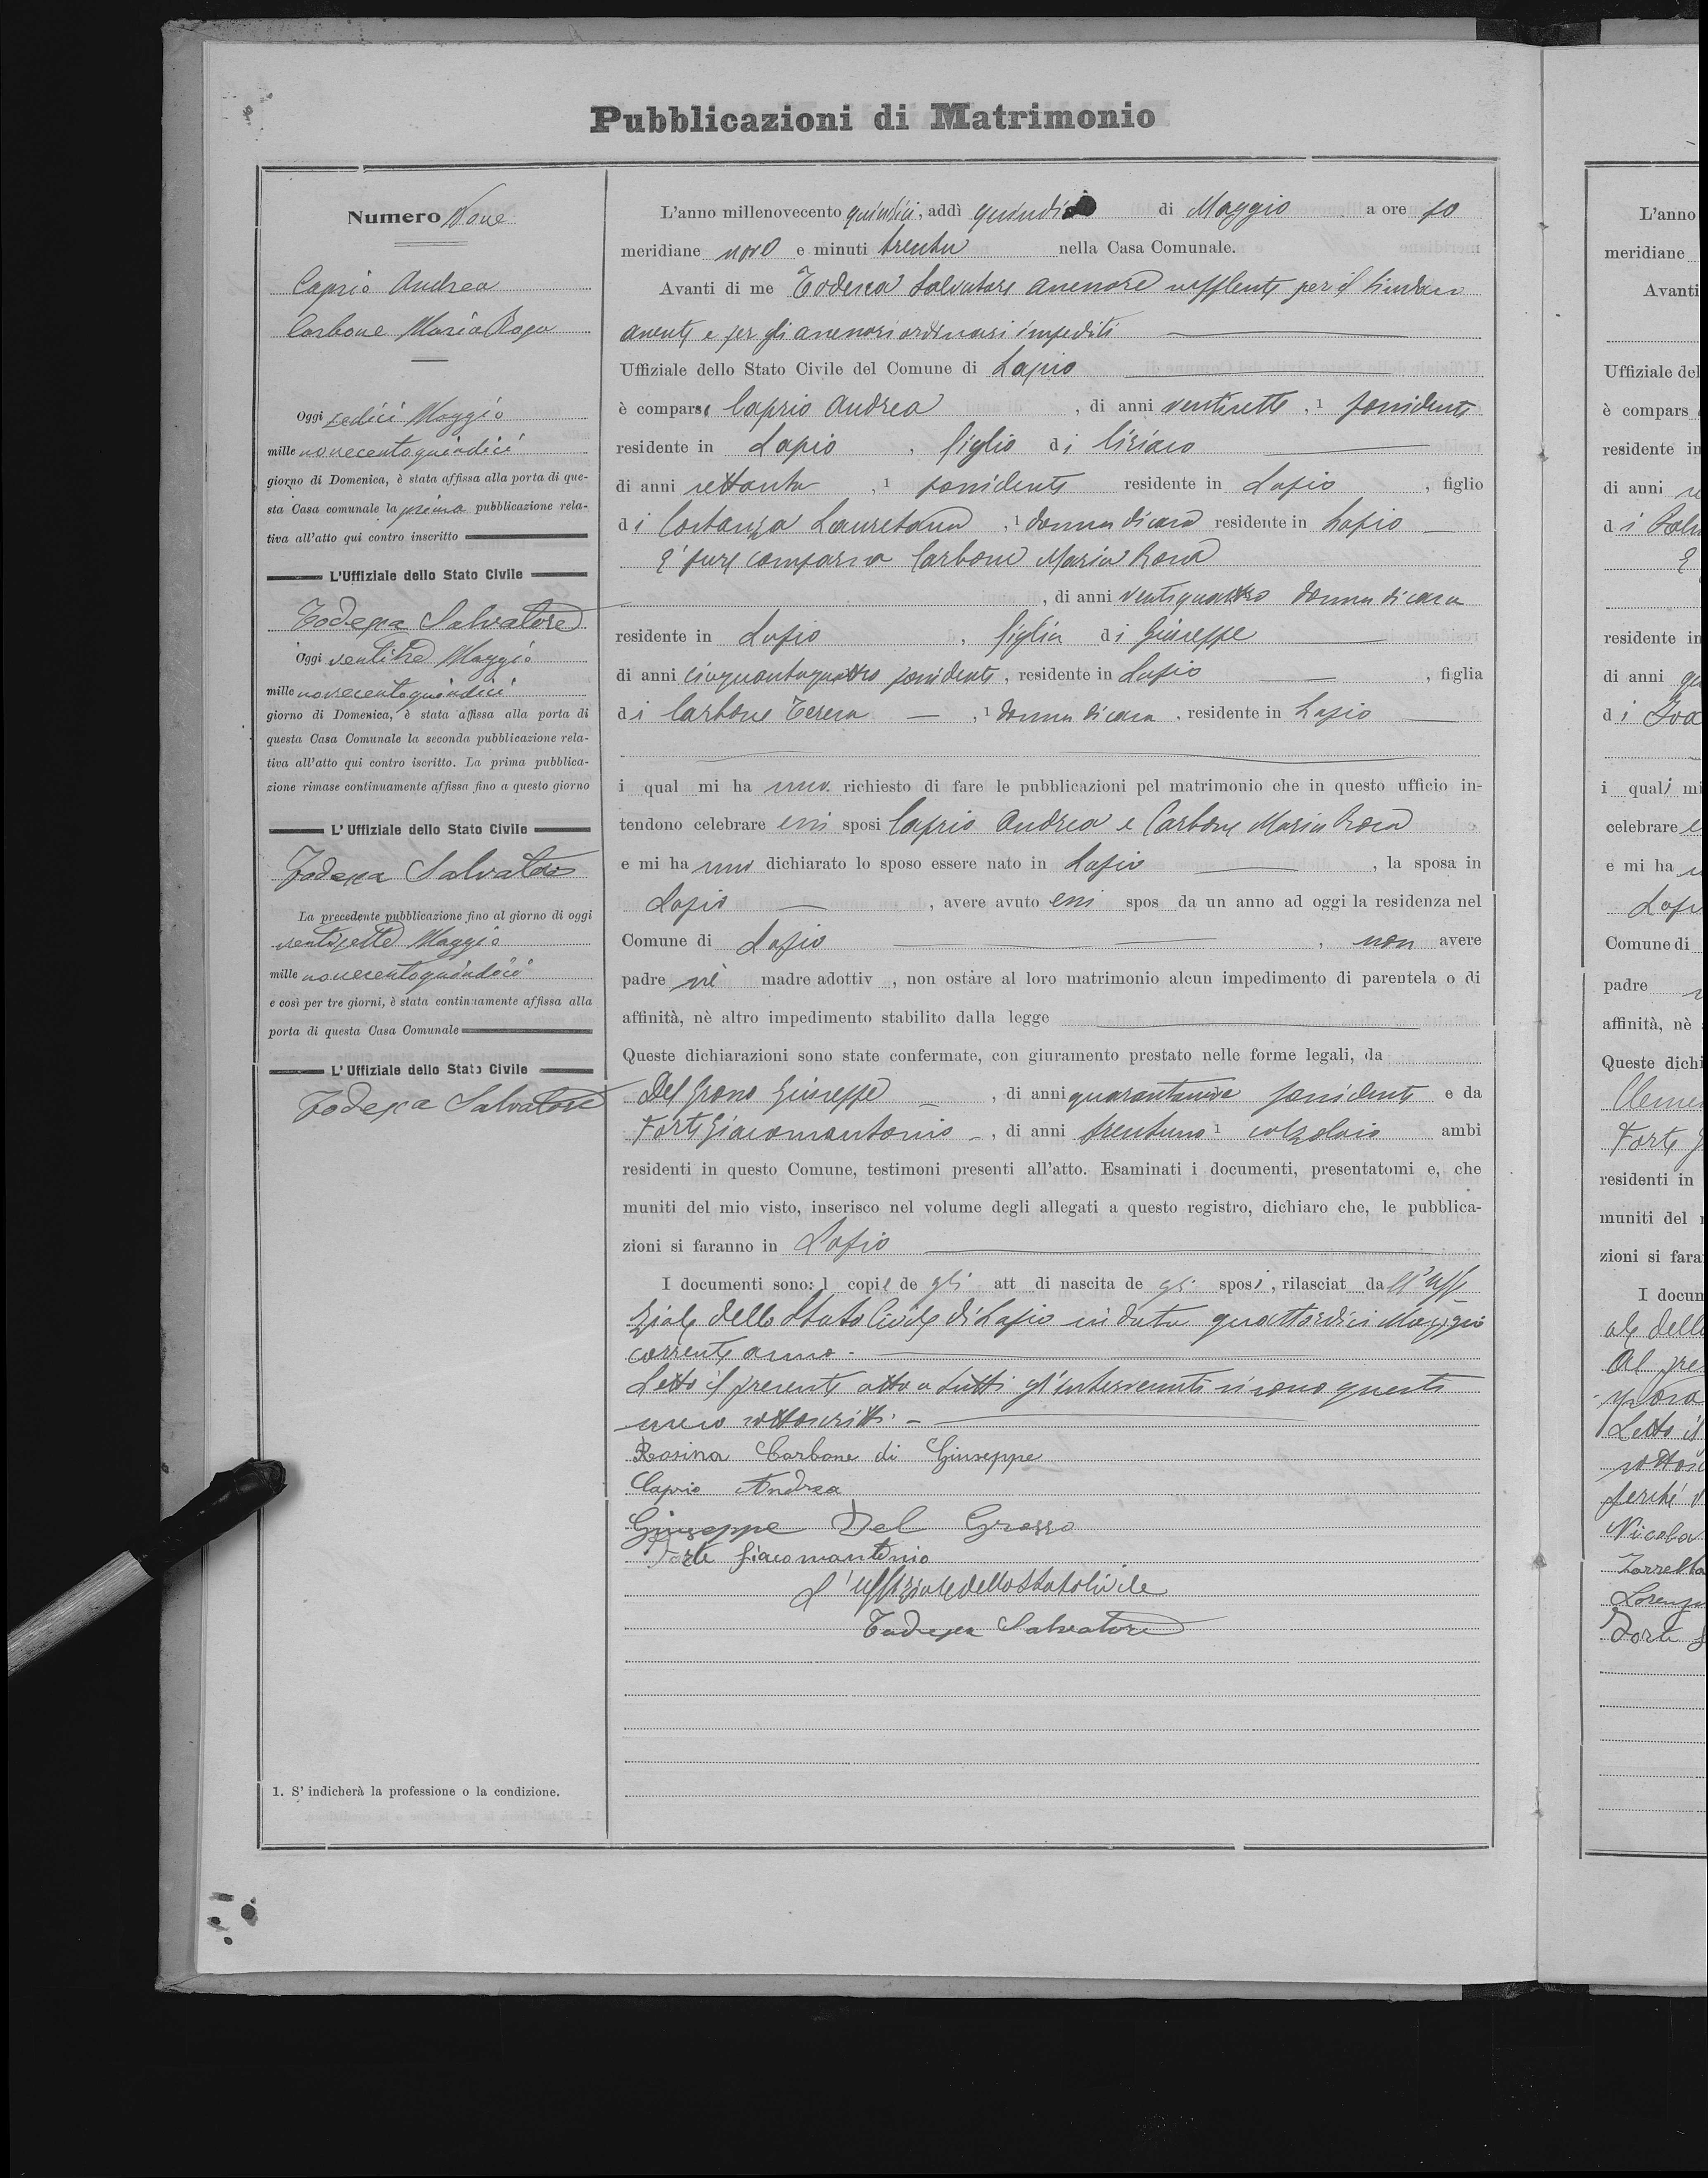 Pubblicazioni di Matrimonio
Numero Nove
Caprio Andrea
Carbone Maria Rosa
Oggi sedici Maggio
mille novecentoquindici
giorno di Domenica, è stata affissa alla porta di que-
sta Casa comunale la prima pubblicazione rela-
tiva all'atto qui contro inscritto
L'Uffiziale dello Stato Civile
Todesca Salvatore
Oggi ventitre Maggio
mille novecentoquindici
giorno di Domenica, è stata affissa alla porta di
questa Casa Comunale la seconda pubblicazione rela-
tiva all'atto qui contro iscritto. La prima pubblica-
zione rimase continuamente affissa fino a questo giorno
L'Uffiziale dello Stato Civile
Todesca Salvatore
La precedente pubblicazione fino al giorno di oggi
ventisette Maggio
mille novecentoquindici
e così per tre giorni, è stata continuamente affissa alla
porta di questa Casa Comunale
L'Uffiziale dello Stato Civile
Todesca Salvatore
1. S'indicherà la professione o la condizione.
L'anno millenovecento quindici, addì quindici di Maggio a ore
meridiane nove e minuti trenta nella Casa Comunale.
Avanti di me Todesca Salvatore assessore supplente per il Sindaco
assente e per gli assessori ordinari impediti
Uffiziale dello Stato Civile del Comune di Lapio
è comparso Caprio Andrea, di anni ventisette, 1 possidente
residente in Lapio, figlio di Ciriaco
di anni settanta, 1 possidente residente in Lapio, figlio
di Costanza Lauretana, 1 donna di casa residente in Lapio
È pure comparsa Carbone Maria Rosa
, di anni ventiquattro donna di casa
residente in Lapio, figlia di Giuseppe
di anni cinquantaquattro possidente, residente in Lapio, figlia
di Carbone Teresa, 1 donna di casa, residente in Lapio
i qual mi ha nno richiesto di fare le pubblicazioni pel matrimonio che in questo ufficio in-
tendono celebrare essi sposi Caprio Andrea e Carbone Maria Rosa
e mi ha nno dichiarato lo sposo essere nato in Lapio, la sposa in
Lapio, avere avuto essi spos da un anno ad oggi la residenza nel
Comune di Lapio, non avere
padre nè madre adottiv , non ostare al loro matrimonio alcun impedimento di parentela o di
affinità, nè altro impedimento stabilito dalla legge
Queste dichiarazioni sono state confermate, con giuramento prestato nelle forme legali, da
Del Grosso Giuseppe, di anni quarantanove possidente e da
Forte Giacomantonio, di anni trentuno 1 calzolaio ambi
residenti in questo Comune, testimoni presenti all'atto. Esaminati i documenti, presentatomi e, che
muniti del mio visto, inserisco nel volume degli allegati a questo registro, dichiaro che, le pubblica-
zioni si faranno in Lapio
I documenti sono: 1 copie de gli att di nascita de gli sposi, rilasciat da ll'Uffi
ziale dello Stato Civile di Lapio in data quattordici Maggio
corrente anno.
Letto il presente atto a tutti gl'intervenuti si sono questi
meco sottoscritti.
Rosina Carbone di Giuseppe
Caprio Andrea
Giuseppe Del Grosso
Forte Giacomantonio
L'Uffiziale dello Stato Civile
Todesca Salvatore
L'anno
meridiane
Avanti
Uffiziale del
è compars
residente in
di anni
di
residente in
di anni
di
i quali mi
celebrare
e mi ha
Comune di
padre
affinità, nè
Queste dichi
Forte
residenti in
muniti del
zioni si fara
I docum
ale dello
Al pre
Letto il
perchè
Nicola
Forte